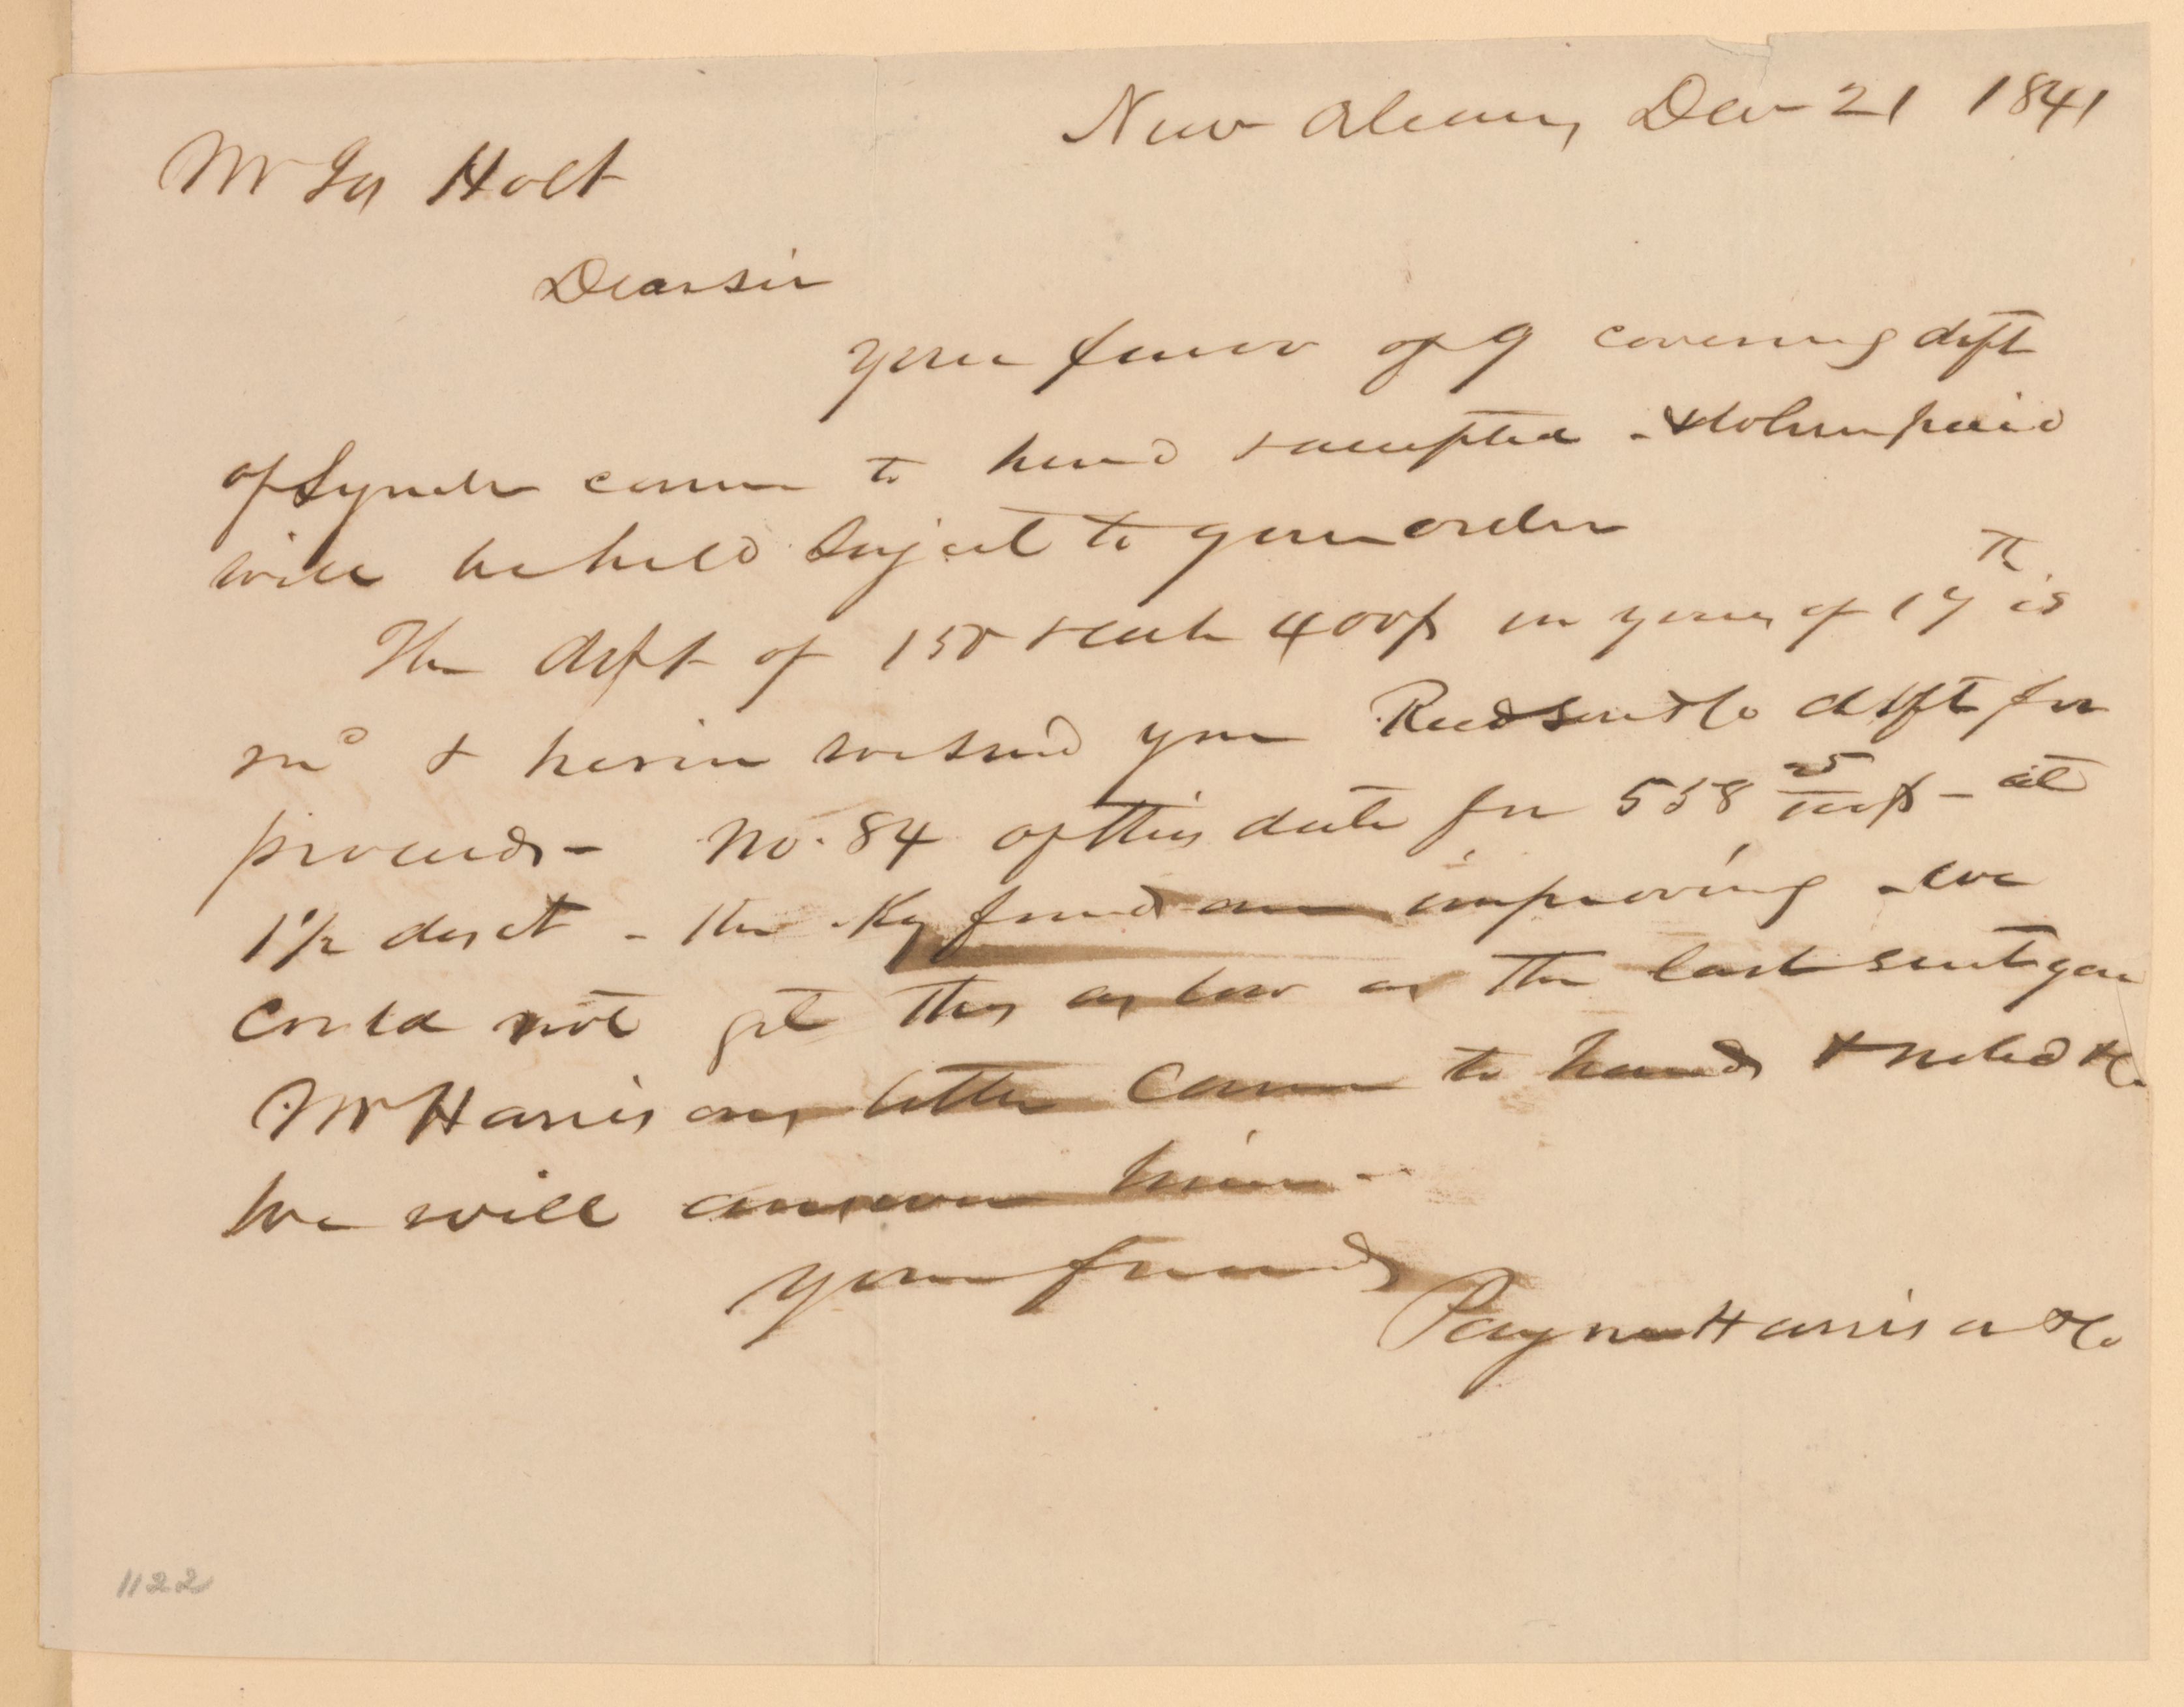 New Orleans, Dec 21 1841
Mr Jos Holt
Dear sir
your favor of 9 covering dft
of Lynch came to hand & accepted - & when paid
will be held Sujcet to your order
The drft of 150 & cash 400$ in yours of 17th is
& herein we send you dfft for
proceeds - No. 84 of this date for 558 25/100$ - at
1 1/2 disct - the Ky funds are improving - we
could not get this as low as the last sent you
Mr Harrisons letter came to hand & noted &c.
We will answer him -
your friends
Payne Harrison & Co
1122